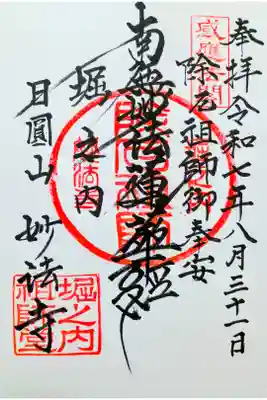 奉拝 令和七年八月三十一日
除厄祖師御奉安
南無妙法蓮華経
堀之内
日圓山 妙法寺
堀之内
祖師堂